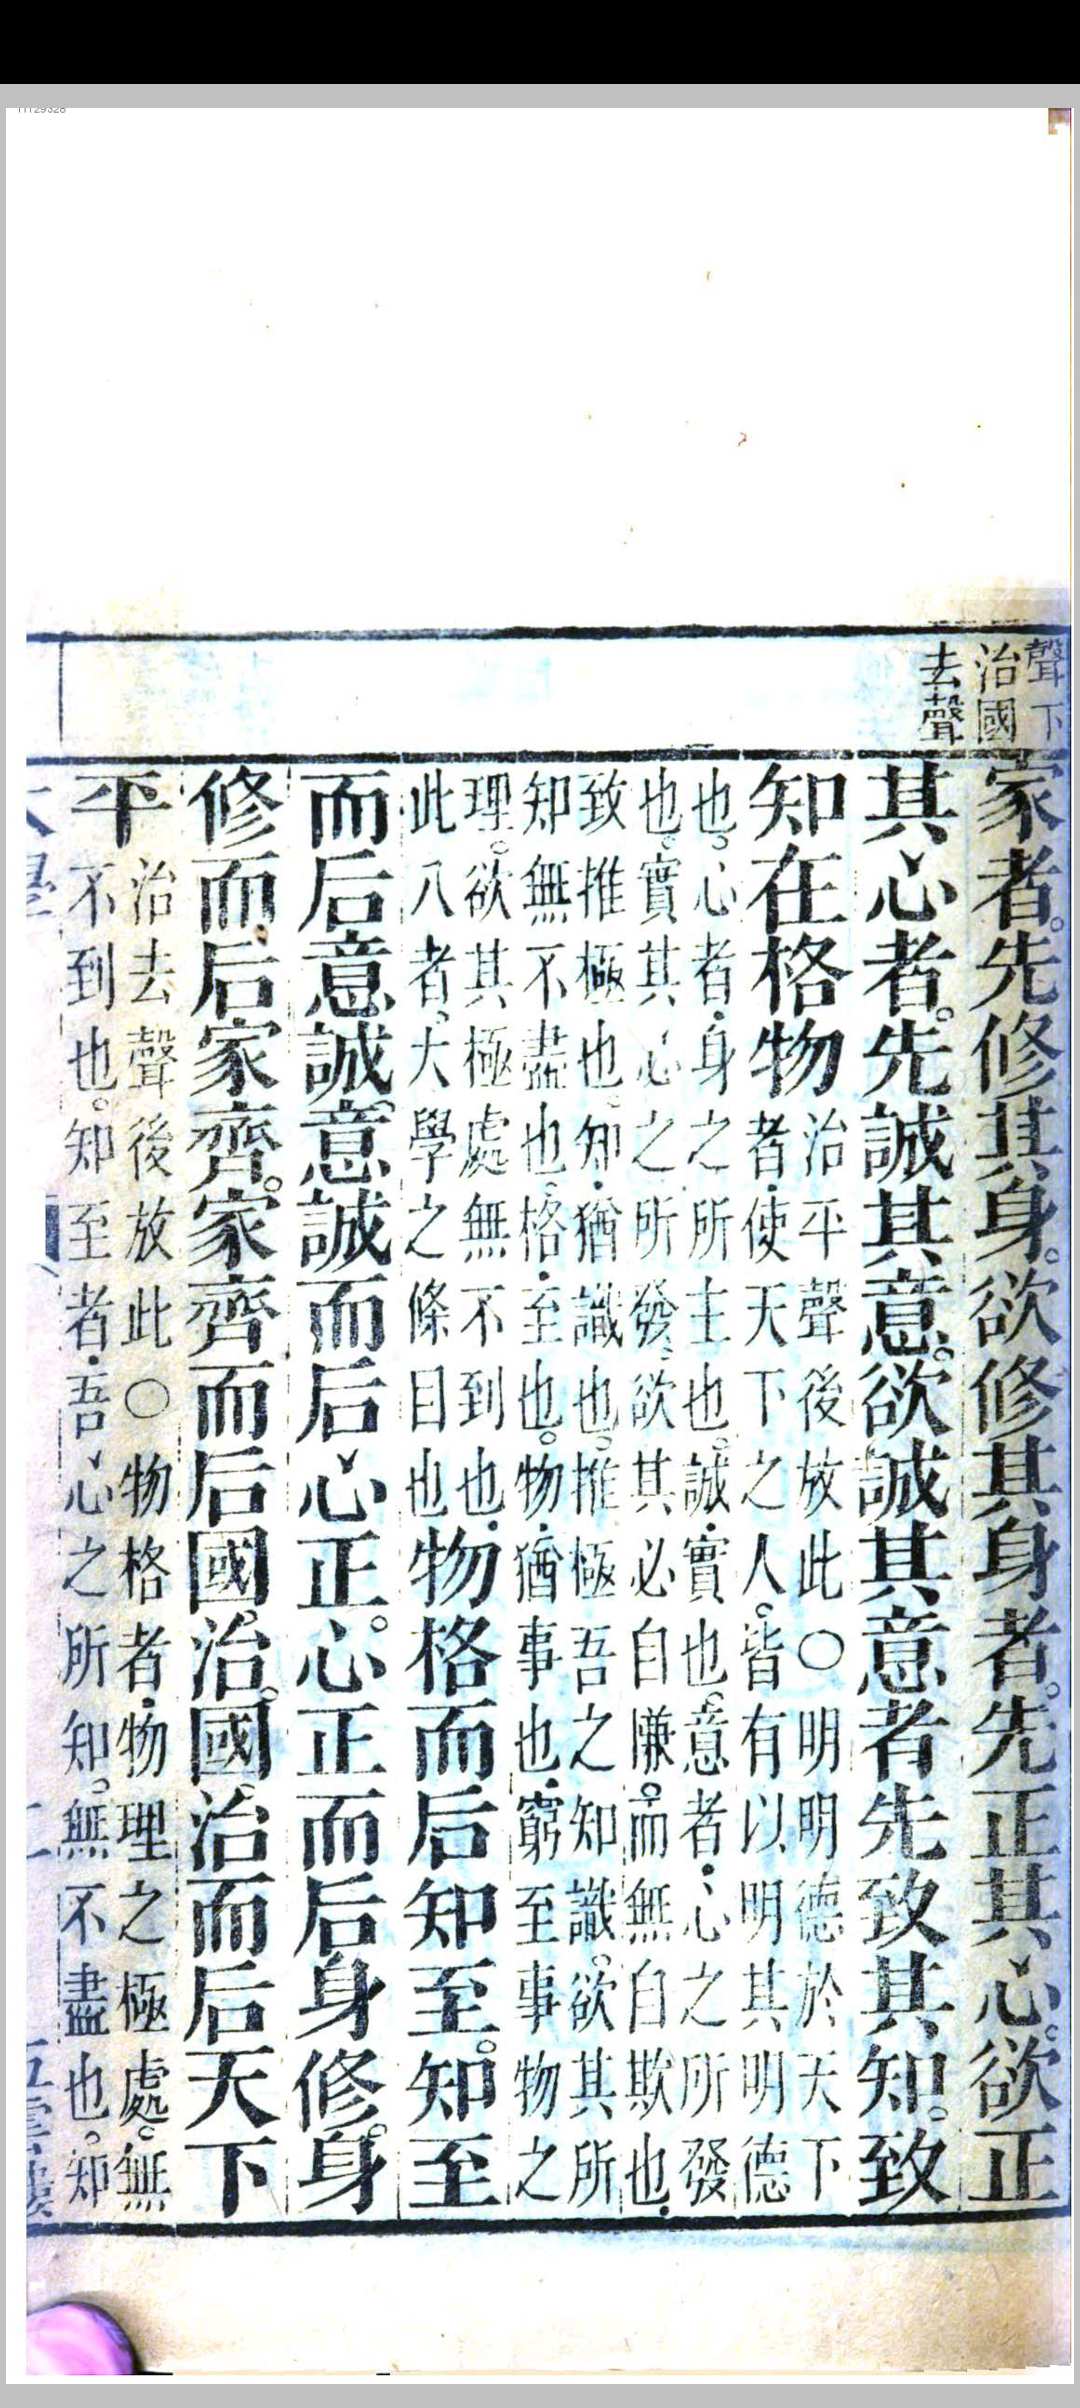 聲下
治國
去聲
家者。先修其身。欲修其身者。先正其心。欲正
其心者。先誠其意。欲誠其意者先致其知。致
知在格物
治平聲後放此〇明明德於天下
者・使天下之人。皆有以明其明德
也。心者・身之所主也。誠・實也。意者・心之所發
也。實其心之所發・欲其必自慊。而無自欺也・
致推極也。知・猶識也。推極吾之知識。欲其所
知無不盡也・格・至也。物・猶事也・窮至事物之
理。欲其極處無不到也・
此八者・大學之條目也
物格而后知至。知至
而后意誠。意誠而后心正。心正而后身修。身
修而后家齊。家齊而后國治。國治而后天下
平
治去聲後放此〇物格者・物理之極處。無
不到也。知至者・吾心之所知。無不盡也。知